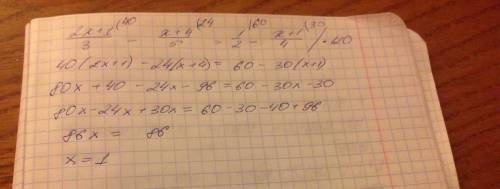 (2x+1)/3 |40 − (x+4)/5 |24 = 1/2 |60 − (x+1)/4 |30 / · 120
40(2x+1) − 24(x+4) = 60 − 30(x+1)
80x + 40 − 24x − 96 = 60 − 30x − 30
80x − 24x + 30x = 60 − 30 − 40 + 96
86x = 86
x = 1